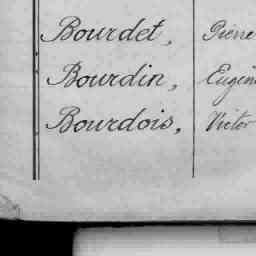 Bourdet, Pierre
Bourdin, Eugèn
Bourdois, Victor